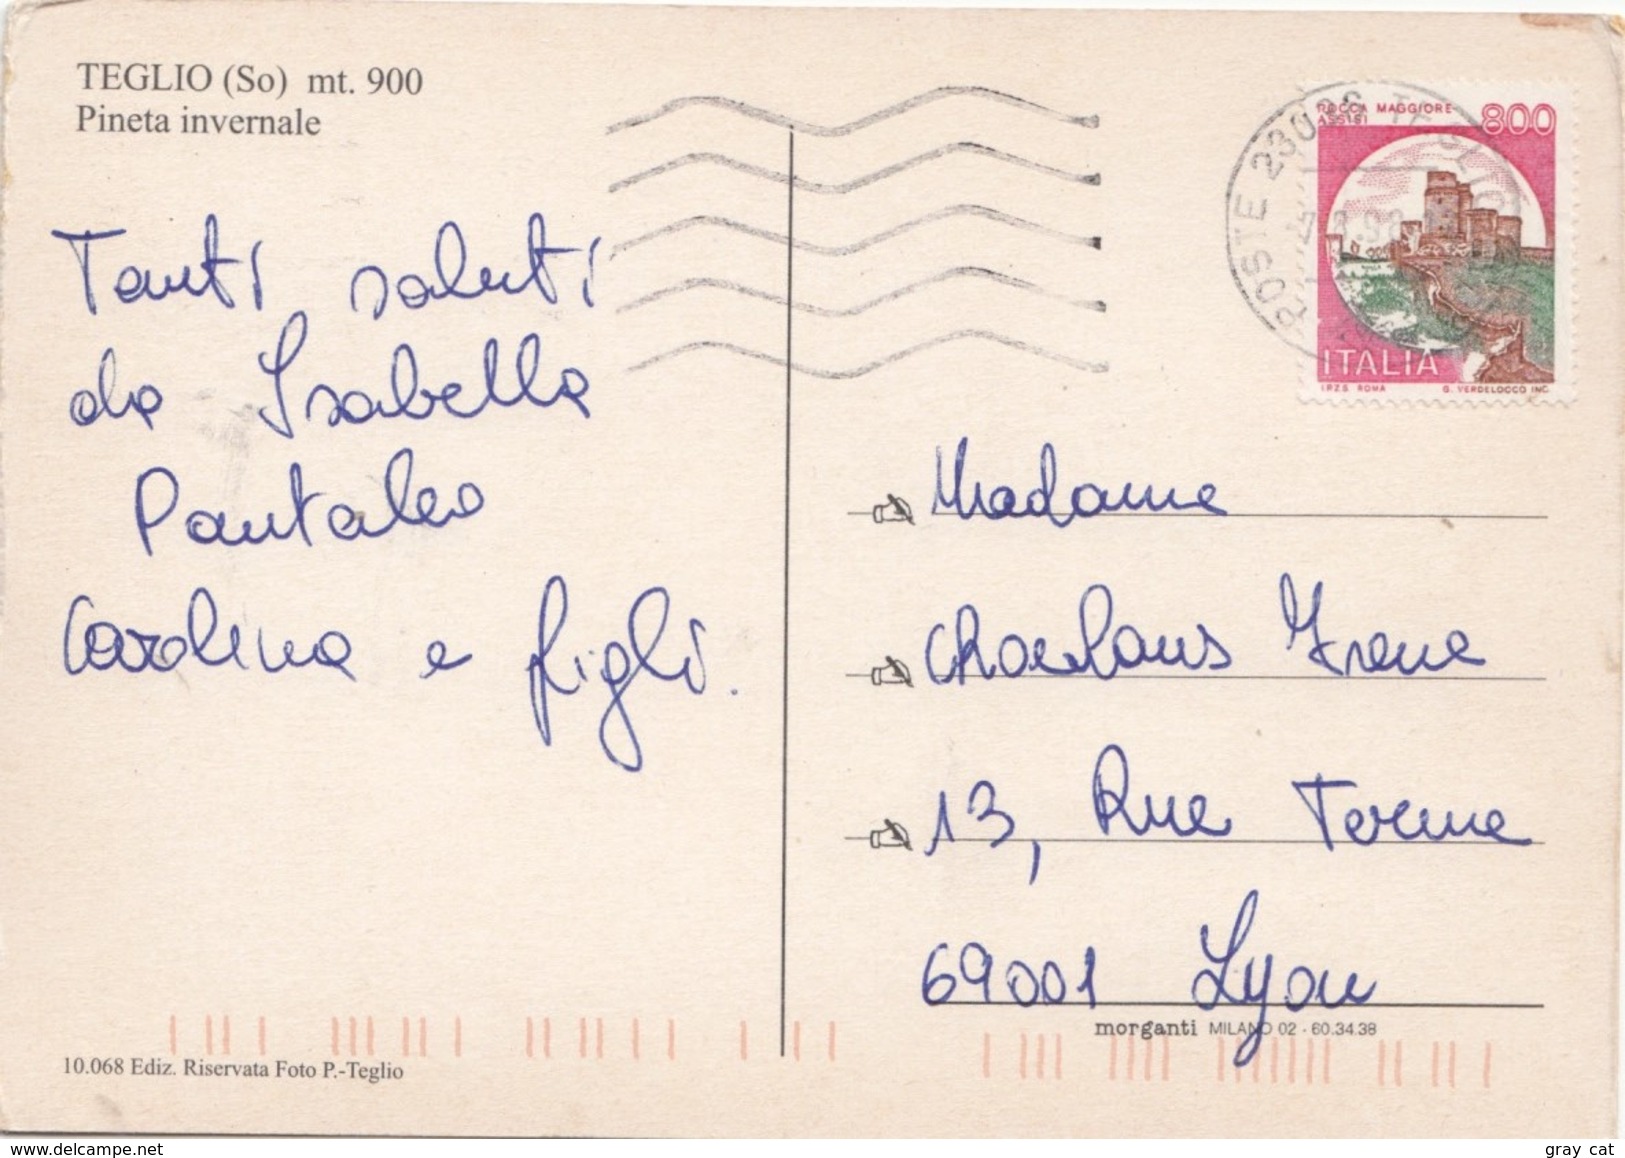 TEGLIO (So) mt. 900
Pineta invernale
Tanti saluti
da Isabella
Pantaleo
Carolina e figli.
ROCCA MAGGIORE
ASSISI
800
ITALIA
I.P.Z.S. ROMA G. VERDELOCCO INC.
POSTE TEGLIO
Madame
Irene
13, Rue Terme
69001 Lyon
morganti MILANO 02 - 60.34.38
10.068 Ediz. Riservata Foto P.-Teglio
delcampe.net
gray cat